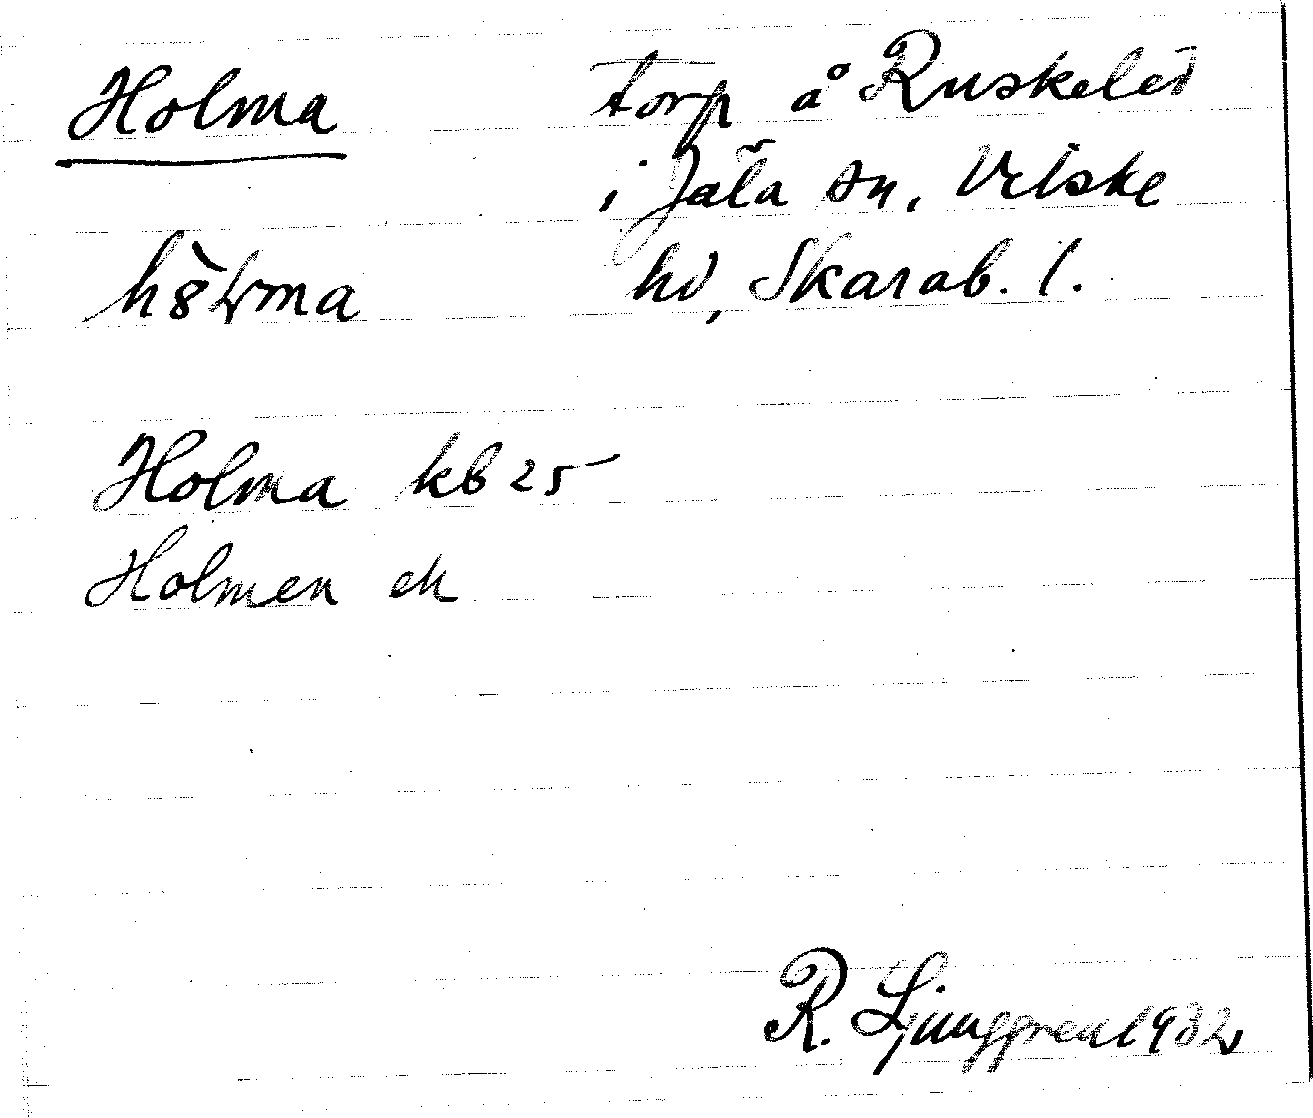 Holma torp å Ruskelid
i Jäla sn, Vilske
hd, Skarab. l.
Holma kb 25
Holmen ek
R. Ljunggren 1932